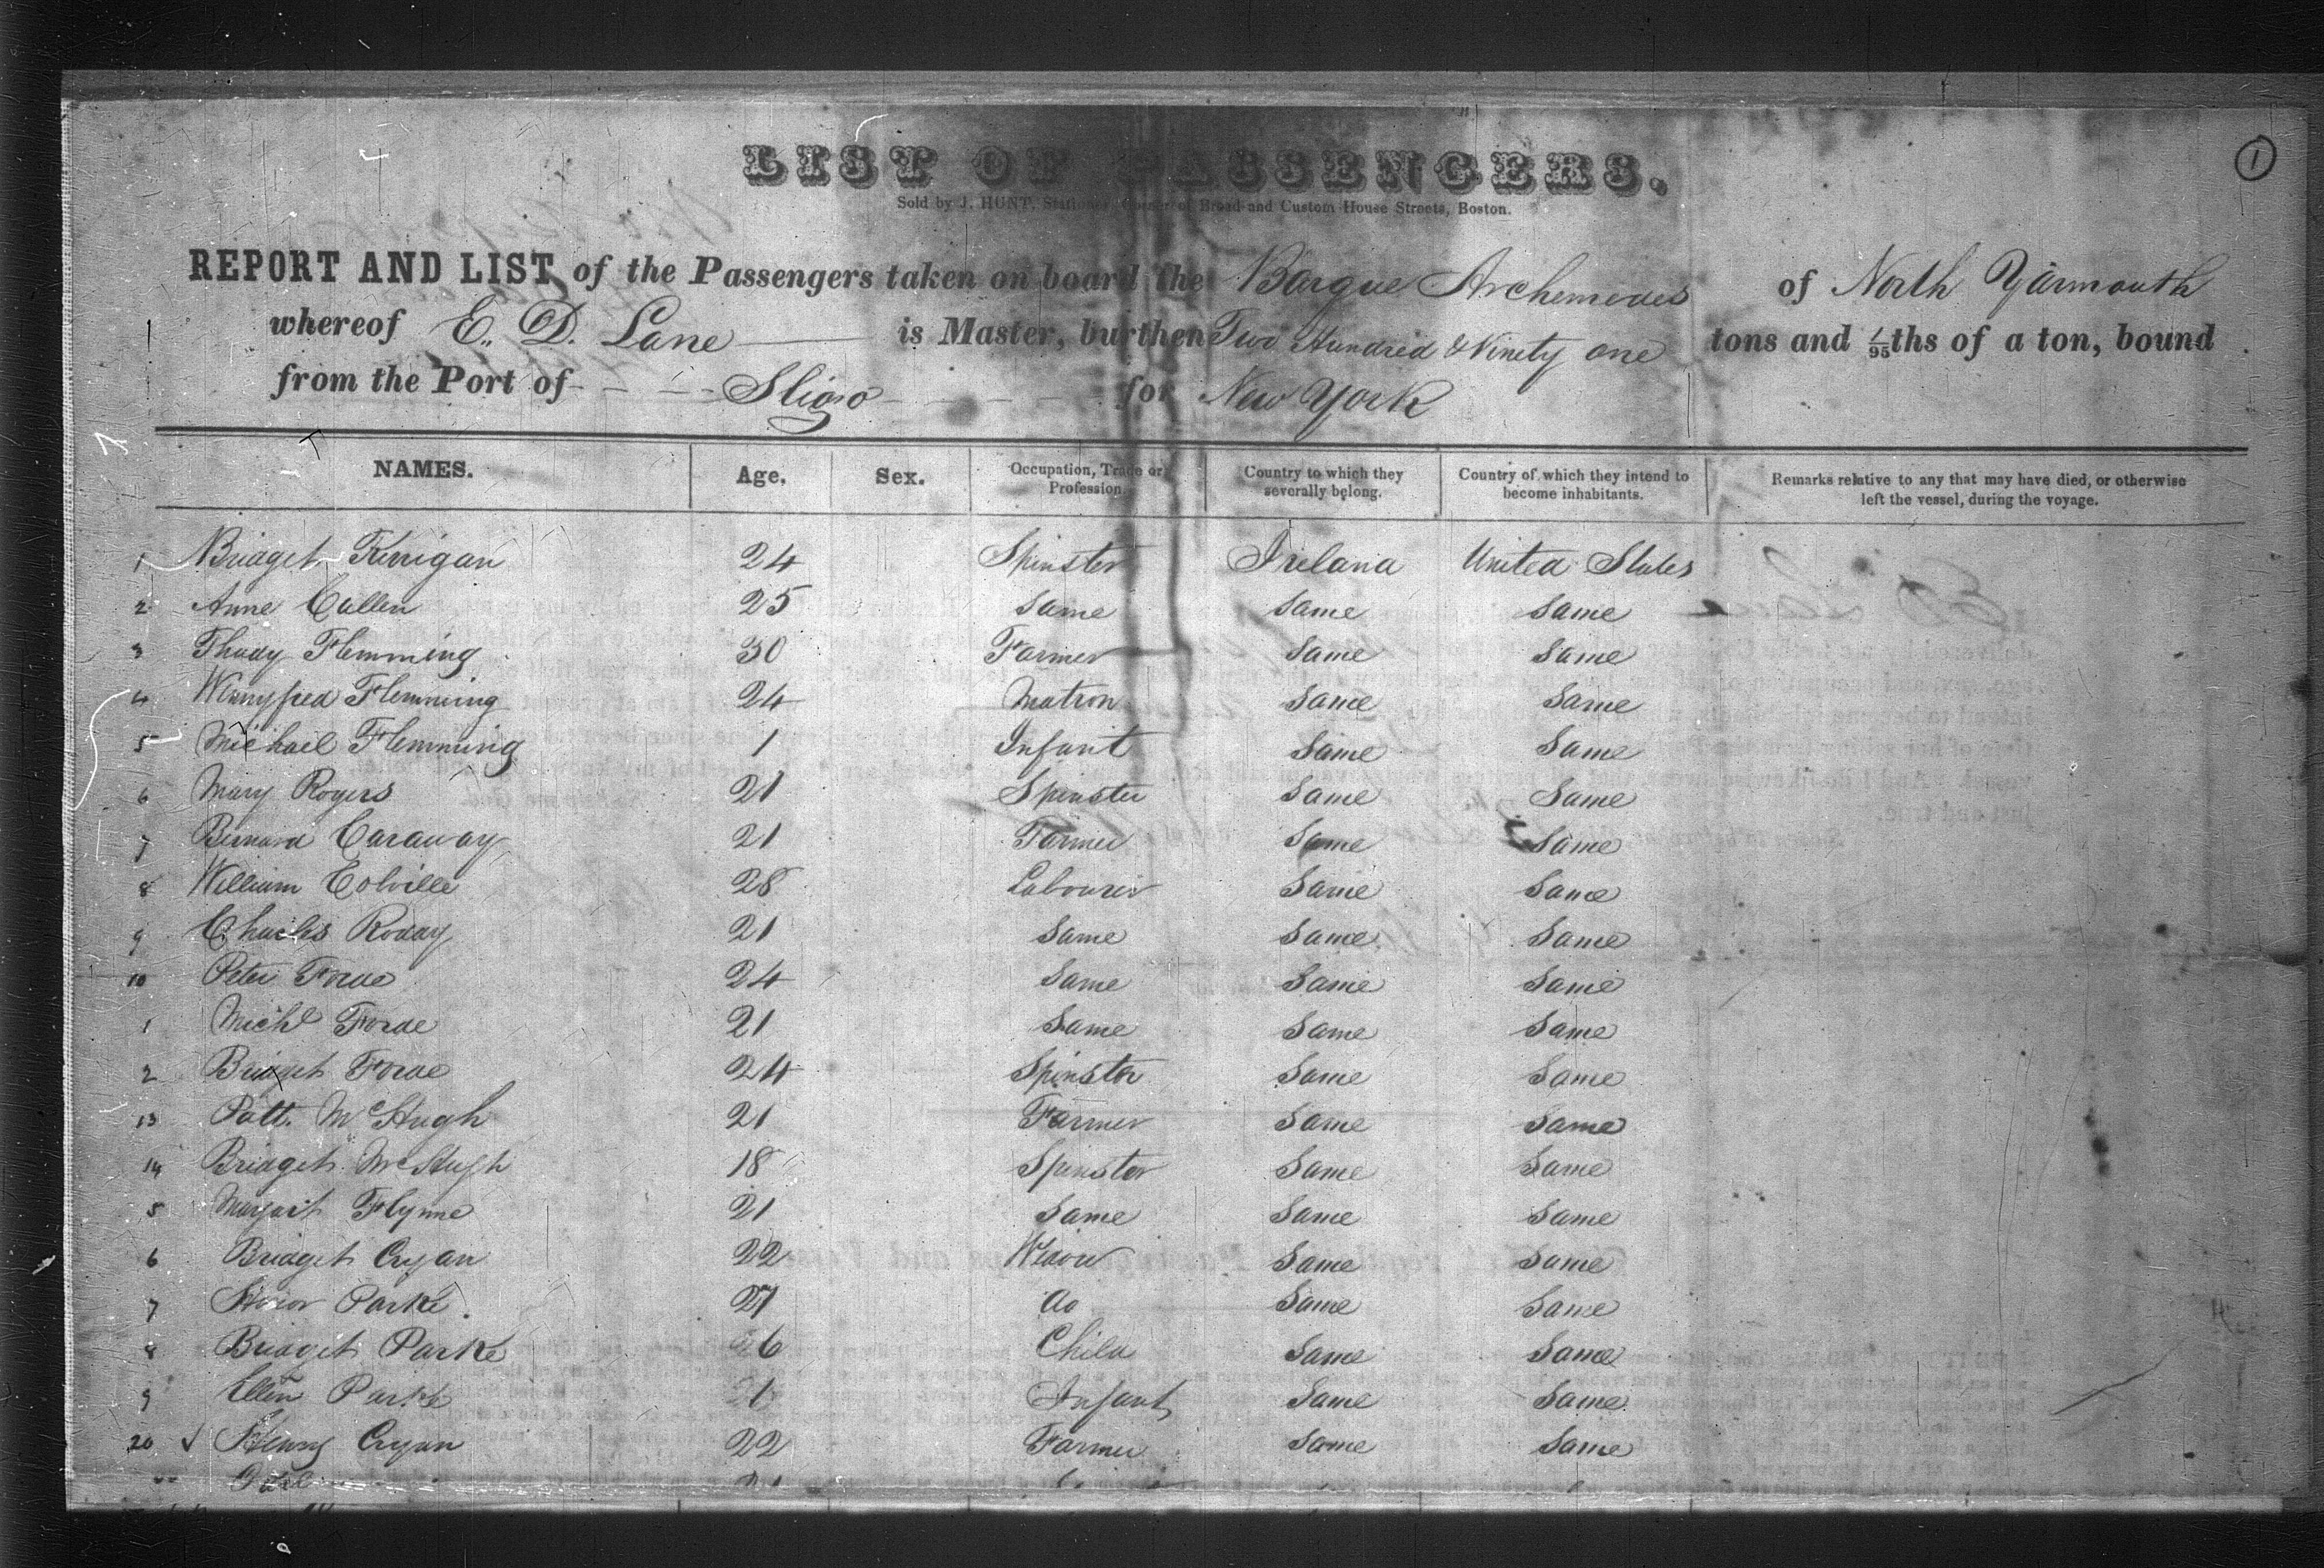 1
LIST OF PASSENGERS.
Sold by J. HUNT, Stationer, Corner of Broad and Custom House Streets, Boston.
REPORT AND LIST of the Passengers taken on board the Barque Archemedes of North Yarmouth
whereof E. D. Lane is Master, burthen Two Hundred & Ninety one tons and 1/95ths of a ton, bound
from the Port of Sligo for New York
NAMES. Age. Sex. Occupation, Trade or Profession. Country to which they severally belong. Country of which they intend to become inhabitants. Remarks relative to any that may have died, or otherwise left the vessel, during the voyage.
1 Bridget Kerrigan 24 Spinster Ireland United States
2 Anne Cullen 25 Same Same Same
3 Thady Flemming 30 Farmer Same Same
4 Winnyfred Flemming 24 Matron Same Same
5 Michael Flemming 1 Infant Same Same
6 Mary Rogers 21 Spinster Same Same
7 Bernard Caraway 21 Farmer Same Same
8 William Colville 28 Labourer Same Same
9 Charles Roday 21 Same Same Same
10 Peter Forde 24 Same Same Same
1 Michl Forde 21 Same Same Same
2 Bridget Forde 24 Spinster Same Same
13 Patt. McHugh 21 Farmer Same Same
14 Bridget McHugh 18 Spinster Same Same
5 Margart Flynne 21 Same Same Same
6 Bridget Cryan 22 Widow Same Same
7 Honor Parke 27 do Same Same
8 Bridget Parke 6 Child Same Same
9 Ellen Parke 1 Infant Same Same
20 Henry Cryan 22 Farmer Same Same